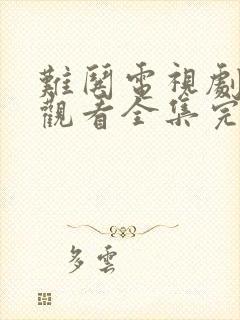 難関電視劇
觀看全集完
多雲